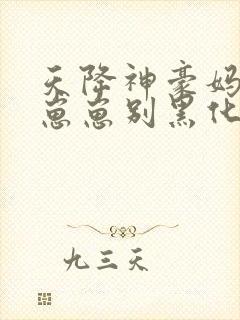 天降神豪妈
崽崽别黑化
九三天